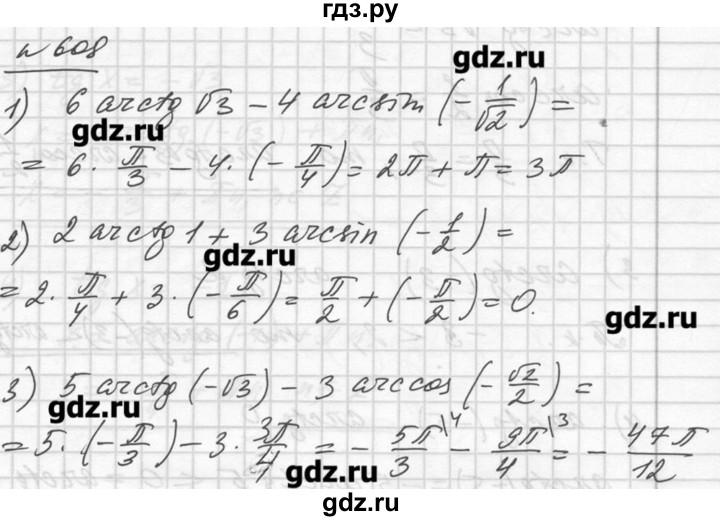 гдз.ру
№ 608
gdz.ru
1) 6 arctg √3 − 4 arcsin (−1/√2) =
gdz.ru
= 6 · π/3 − 4 · (−π/4) = 2π + π = 3π
2) 2 arctg 1 + 3 arcsin (−1/2) =
gdz.ru
= 2 · π/4 + 3 · (−π/6) = π/2 + (−π/2) = 0.
gdz.ru
3) 5 arctg (−√3) − 3 arccos (−√2/2) =
gdz.ru
= 5 · (−π/3) − 3 · 3π/4 = − 5π/3 |4 − 9π/4 |3 = − 47π/12
gdz.ru
gdz.ru